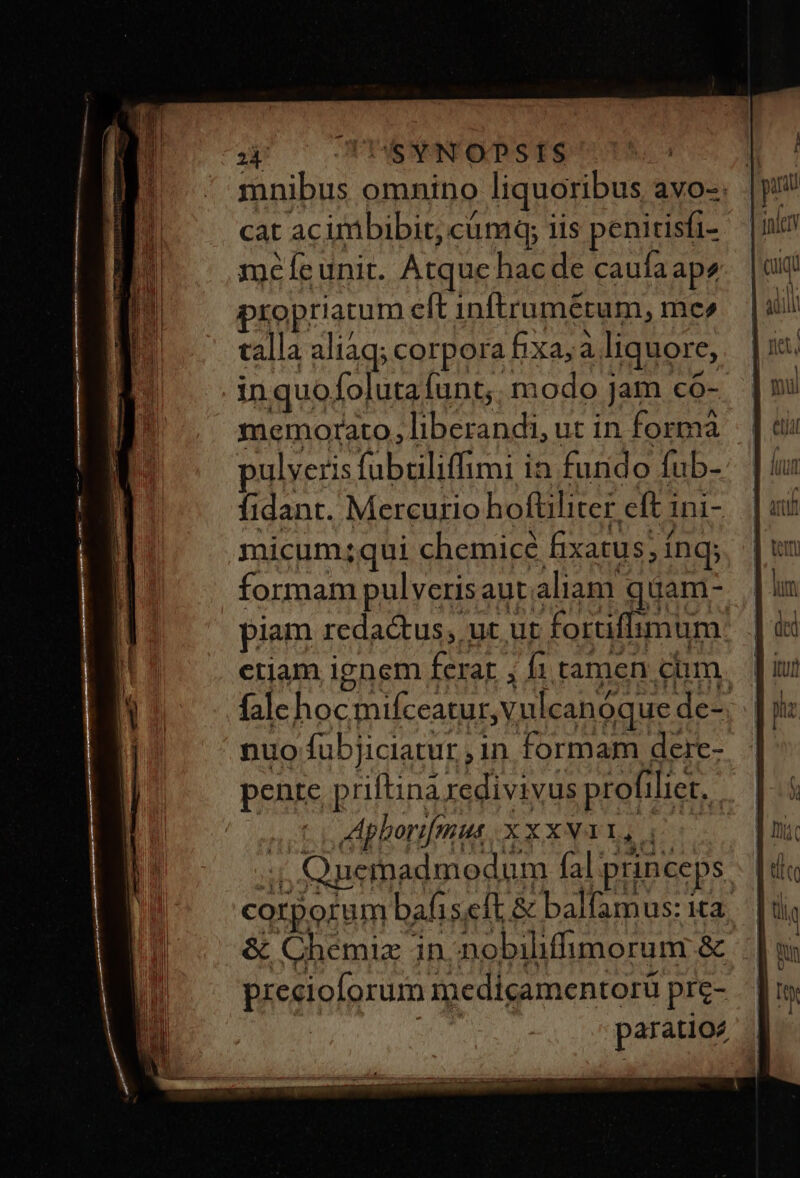 24 SYNOPSIS
mnibus omnino liquoribus avo-
cat ac imbibit, cúmq; iis penitisſi-
mè ſe unit. Atque hac de cauſa ap⸗
propriatum eſt inſtrumétum, me⸗
talla aliáq; corpora fixa, à liquore,
in quo ſoluta ſunt, modo jam có-
memorato, liberandi, ut in formâ
pulveris ſubtiliſſimi in fundo ſub-
ſidant. Mercurio hoſtiliter eſt ini-
micum; qui chemicè fixatus, inq;
formam pulveris aut aliam quam-
piam redactus, ut ut fortiſſimum
etiam ignem ferat, ſi tamen cùm
ſale hoc miſceatur, vulcanóque de-
nuo ſubjiciatur, in formam dere-
pente priſtinâ redivivus proſiliet.
Aphoriſmus XXXVII.
Quemadmodum ſal princeps
corporum baſis eſt & balſamus: ita
& Chemiæ in nobiliſſimorum &
precioſorum medicamentorú præ-
paratio⸗